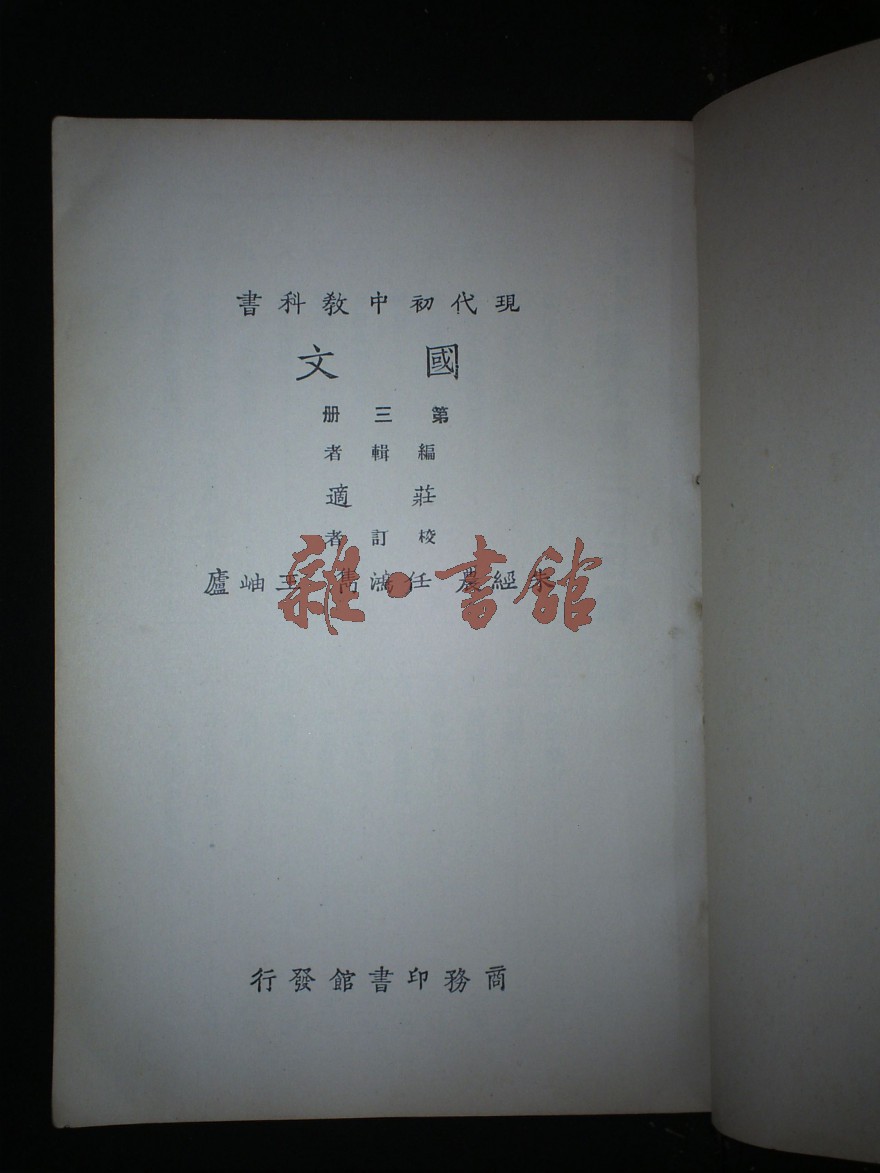 現代初中教科書
國文
第三册
編輯者
莊適
校訂者
朱經農 任鴻雋 王岫廬
雜·書館
商務印書館發行